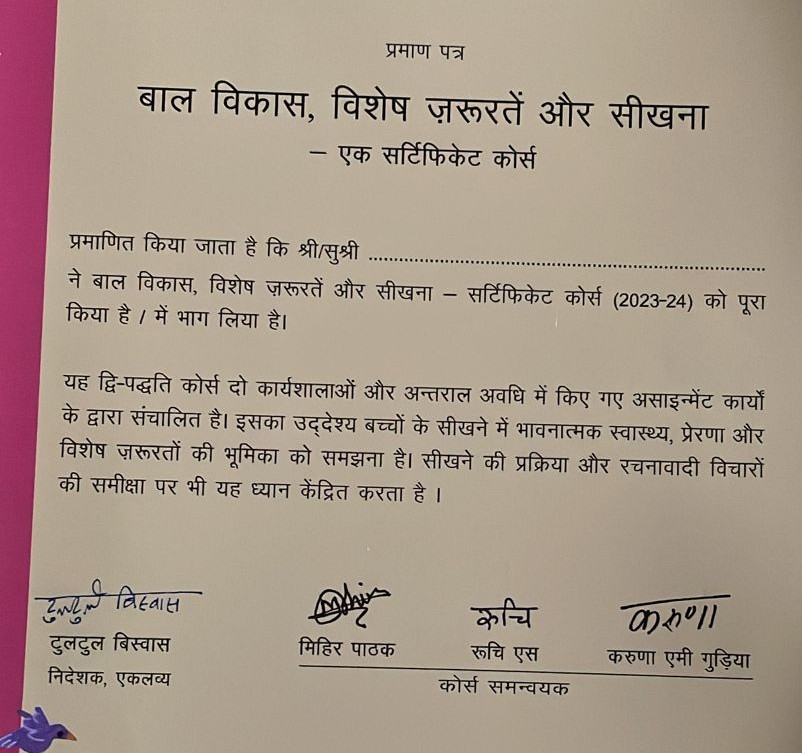 प्रमाण पत्र
बाल विकास, विशेष ज़रूरतें और सीखना
– एक सर्टिफिकेट कोर्स
प्रमाणित किया जाता है कि श्री/सुश्री ..............................................................
ने बाल विकास, विशेष ज़रूरतें और सीखना – सर्टिफिकेट कोर्स (2023-24) को पूरा
किया है / में भाग लिया है।
यह द्वि-पद्धति कोर्स दो कार्यशालाओं और अन्तराल अवधि में किए गए असाइन्मेंट कार्यों
के द्वारा संचालित है। इसका उद्देश्य बच्चों के सीखने में भावनात्मक स्वास्थ्य, प्रेरणा और
विशेष ज़रूरतों की भूमिका को समझना है। सीखने की प्रक्रिया और रचनावादी विचारों
की समीक्षा पर भी यह ध्यान केंद्रित करता है ।
टुलटुल बिस्वास रुचि करुणा
टुलटुल बिस्वास मिहिर पाठक रूचि एस करुणा एमी गुड़िया
निदेशक, एकलव्य कोर्स समन्वयक